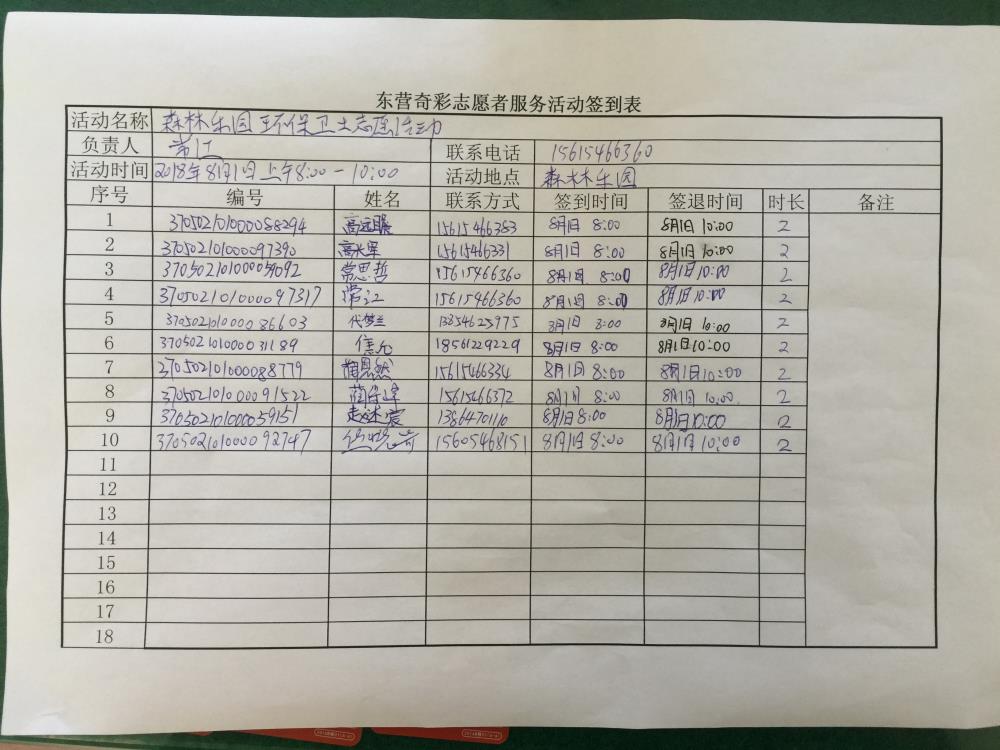 东营奇彩志愿者服务活动签到表
活动名称 森林乐园环保卫士志愿活动
负责人 常江 联系电话 15615466360
活动时间 2018年8月1日上午8:00-10:00 活动地点 森林乐园
序号 编号 姓名 联系方式 签到时间 签退时间 时长 备注
1 370502101000088294 高远眺 15615466363 8月1日 8:00 8月1日 10:00 2
2 370502101000097390 高长军 15615466331 8月1日 8:00 8月1日 10:00 2
3 370502101000059092 常思哲 15615466360 8月1日 8:00 8月1日 10:00 2
4 370502101000097317 常江 15615466360 8月1日 8:00 8月1日 10:00 2
5 370502101000086603 代梦兰 13854625975 8月1日 8:00 8月1日 10:00 2
6 370502101000031189 信元 18561229229 8月1日 8:00 8月1日 10:00 2
7 370502101000088779 15615466334 8月1日 8:00 8月1日 10:00 2
8 370502101000091522 15615466372 8月1日 8:00 8月1日 10:00 2
9 3705021010000059151 13864701110 8月1日 8:00 8月1日 10:00 2
10 370502101000092747 15605468151 8月1日 8:00 8月1日 10:00 2
11
12
13
14
15
16
17
18